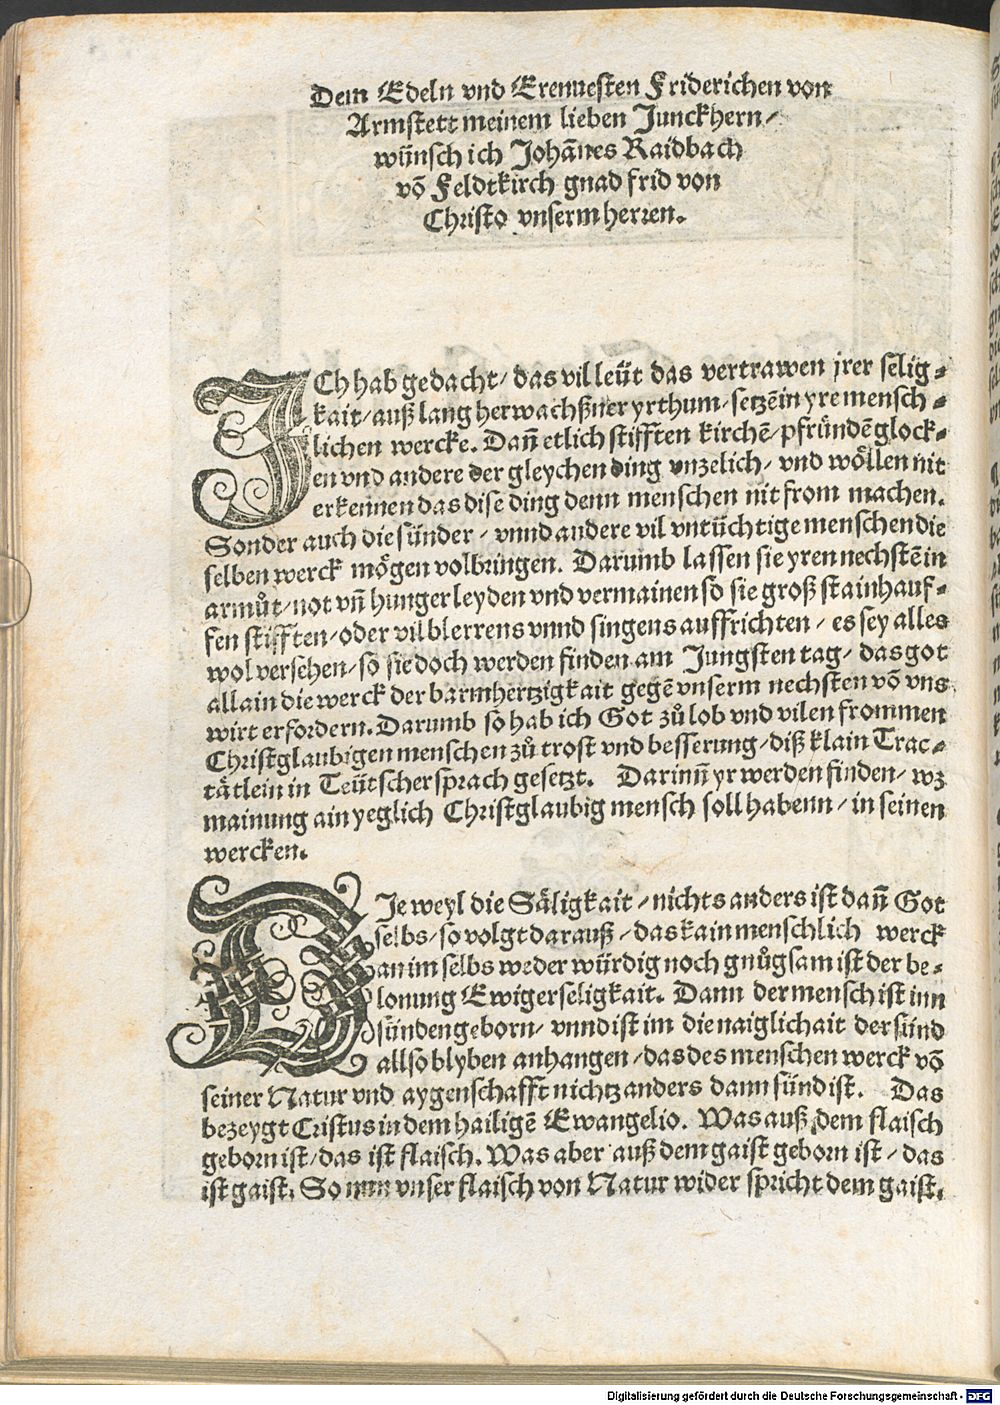 Dem Edeln vnd Erenuesten Friderichen von
Armstett meinem lieben Junckhern/
wünsch ich Johān̄es Raidbach
vō Feldtkirch gnad frid von
Christo vnserm herren.
ICh hab gedacht/ das vil leüt das vertrawen jrer selig⸗
kait/ auß lang her wachßner yrthum/ setzē in yre mensch⸗
lichen wercke. Dan̄ etlich stifften kirchē/ pfründē glock⸗
en vnd andere der gleychen ding vnzelich/ vnd wöllen nit
erkennen das dise ding denn menschen nit from machen.
Sonder auch die sünder/ vnnd andere vil vntüchtige menschen die
selben werck mögen volbringen. Darumb lassen sie yren nechstē in
armůt/ not vn̄ hunger leyden vnd vermainen so sie groß stainhauf⸗
fen stifften/ oder vil blerrens vnnd singens auffrichten/ es sey alles
wol versehen/ so sie doch werden finden am Jungsten tag/ das got
allain die werck der barmhertzigkait gegē vnserm nechsten vō vns
wirt erfordern. Darumb so hab ich Got zů lob vnd vilen frommen
Christglaubigen menschen zů trost vnd besserung/ diß klain Trac⸗
tätlein in Teütscher sprach gesetzt. Darinn̄ yr werden finden/ wz
mainung ain yeglich Christglaubig mensch soll habenn/ in seinen
wercken.
DIe weyl die Säligkait/ nichts anders ist dan̄ Got
selbs/ so volgt darauß/ das kain menschlich werck
an im selbs weder würdig noch gnůgsam ist der be⸗
lonung Ewiger seligkait. Dann der mensch ist inn
sünden geborn/ vnnd ist im die naiglichait der sünd
allso blyben anhangen/ das des menschen werck vō
seiner Natur vnd aygenschafft nichtz anders dann sünd ist. Das
bezeygt Cristus in dem hailigē Ewangelio. Was auß dem flaisch
geborn ist/ das ist flaisch. Was aber auß dem gaist geborn ist/ das
ist gaist. So nun vnser flaisch von Natur wider spricht dem gaist.
Digitalisierung gefördert durch die Deutsche Forschungsgemeinschaft - DFG